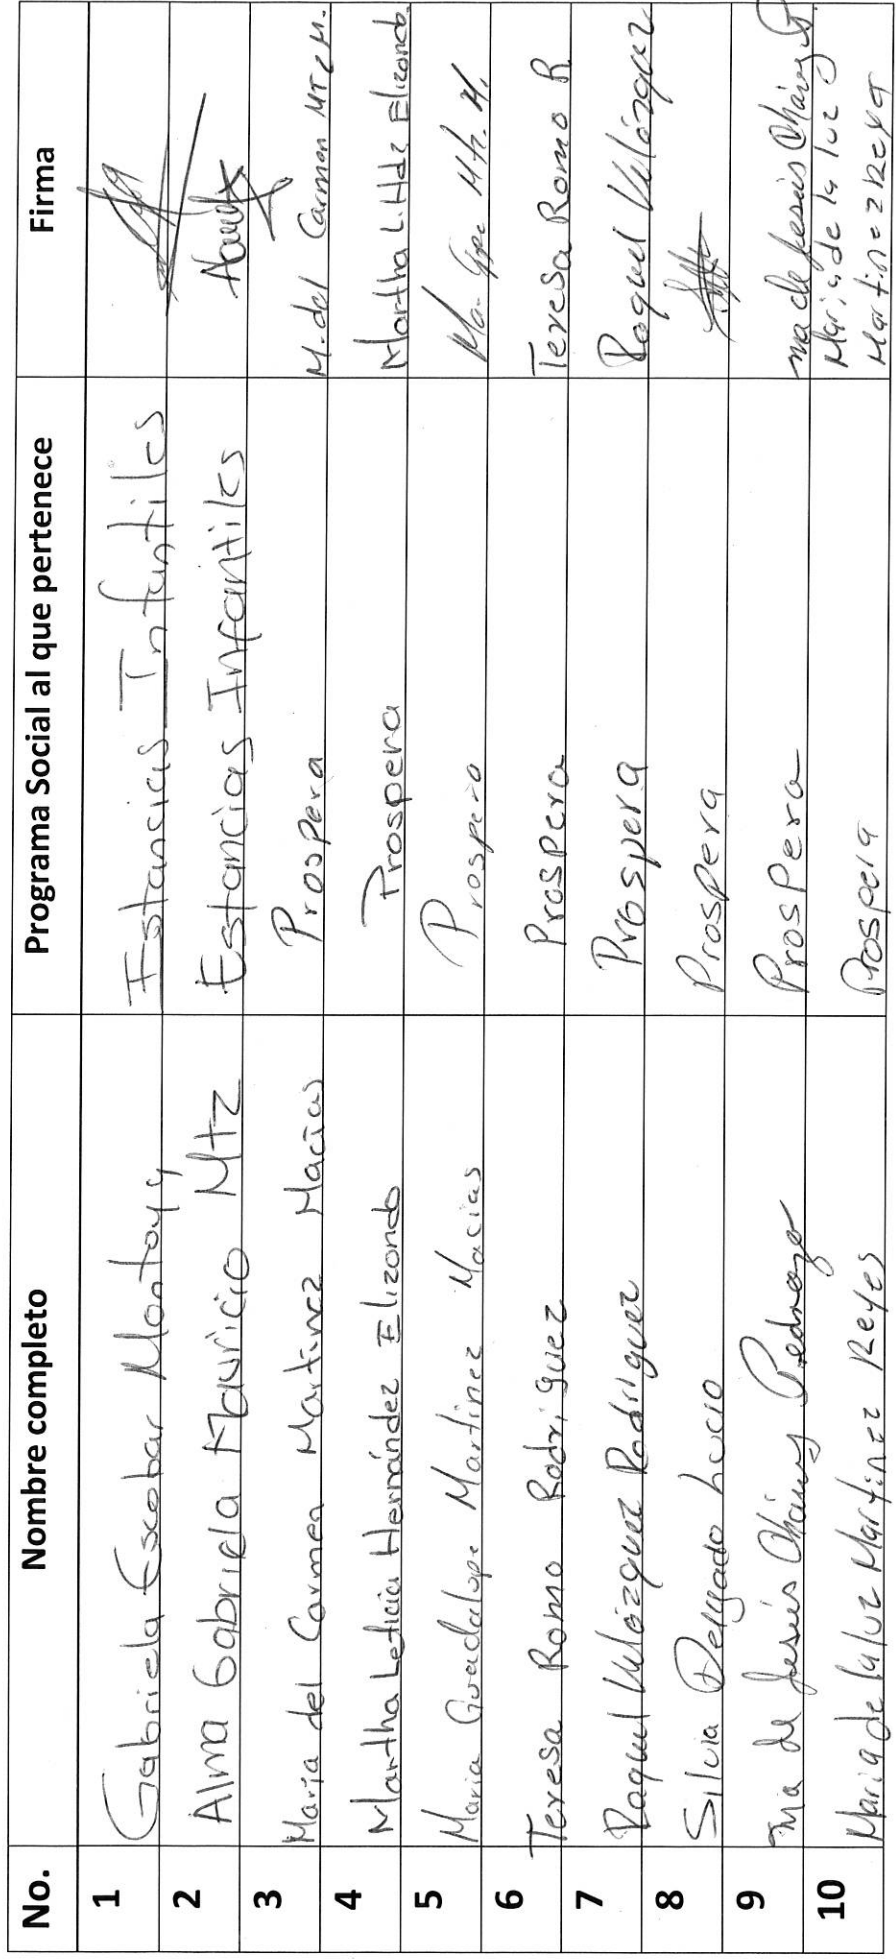 No. Nombre completo Programa Social al que pertenece Firma
1 Gabriela Escobar Montoya Estancias Infantiles
2 Alma Gabriela Mauricio Mtz Estancias Infantiles
3 Maria del Carmen Martinez Macias Prospera M. del Carmen Mtz M.
4 Martha Leticia Hernández Elizondo Prospera Martha L. Hdz Elizondo.
5 Maria Guadalupe Martinez Macias Prospera Ma. Gpe Mtz. M.
6 Teresa Romo Rodriguez Prospera Teresa Romo R.
7 Raquel Velázquez Rodriguez Prospera Raquel Velázquez
8 Silvia Delgado Lucio Prospera
9 Ma de Jesús Cháirez Pedroza Prospera ma de Jesús Cháirez P.
10 Maria de la luz Martinez Reyes Prospera Maria de la luz
Martinez Reyes